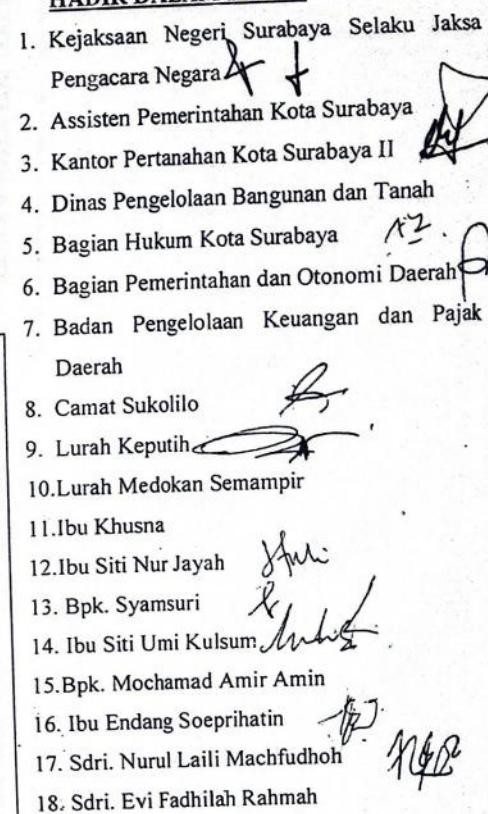 1. Kejaksaan Negeri Surabaya Selaku Jaksa
Pengacara Negara
2. Assisten Pemerintahan Kota Surabaya
3. Kantor Pertanahan Kota Surabaya II
4. Dinas Pengelolaan Bangunan dan Tanah
5. Bagian Hukum Kota Surabaya
6. Bagian Pemerintahan dan Otonomi Daerah
7. Badan Pengelolaan Keuangan dan Pajak
Daerah
8. Camat Sukolilo
9. Lurah Keputih
10.Lurah Medokan Semampir
11.Ibu Khusna
12.Ibu Siti Nur Jayah
13. Bpk. Syamsuri
14. Ibu Siti Umi Kulsum
15.Bpk. Mochamad Amir Amin
16. Ibu Endang Soeprihatin
17. Sdri. Nurul Laili Machfudhoh
18. Sdri. Evi Fadhilah Rahmah